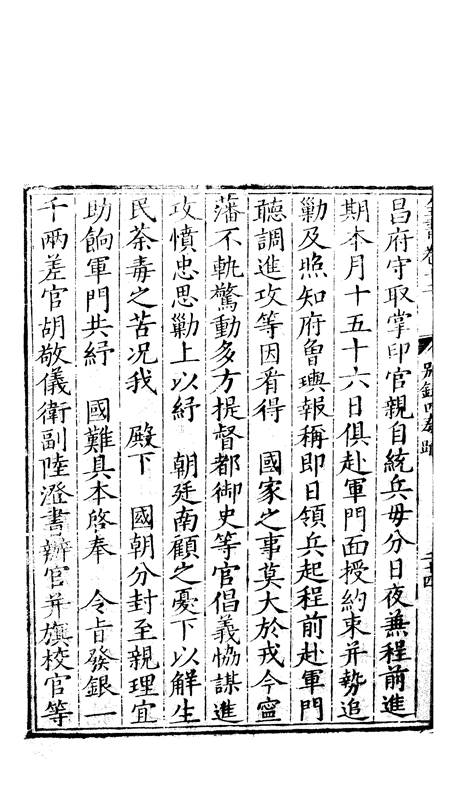 昌府守取掌印官親自統兵毋分日夜兼程前進
期本月十五十六日俱赴軍門面授約束并勢追
勦及照知府曾璵報稱即日領兵起程前赴軍門
聽調進攻等因看得　國家之事莫大於戎今寧
藩不軌驚動多方提督都御史等官倡義恊謀進
攻憤忠思勦上以紓　朝廷南顧之憂下以解生
民荼毒之苦况我　殿下　國朝分封至親理宜
助餉軍門共紓　國難具本啓奉　令旨發銀一
千兩差官胡敬儀衛副陸澄書辦官并旗校官等